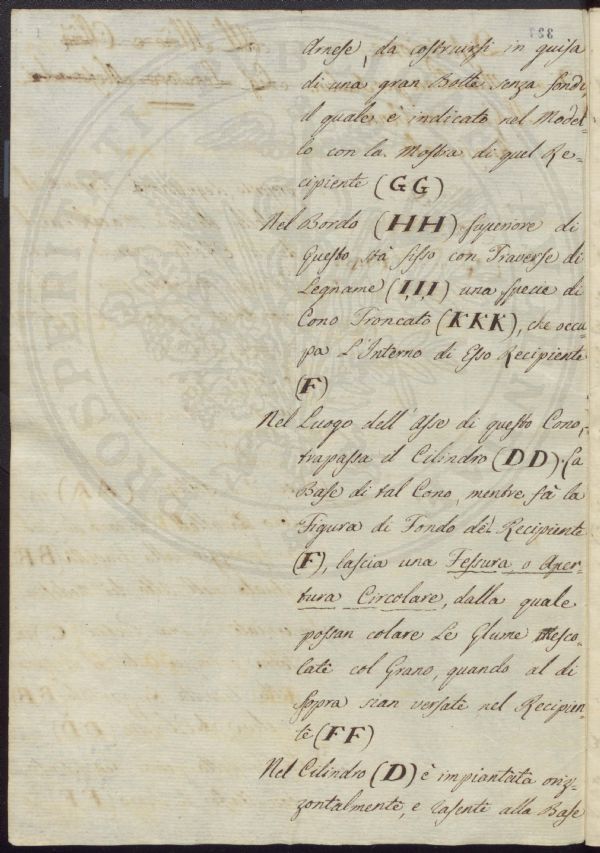 Arnese, da costruirsi in guisa
di una gran Botte senza fondi,
il quale è indicato nel Model-
lo con la Mostra di quel Re-
cipiente (GG)
Nel Bordo (HH) superiore di
Questo, stà fisso con Traverse di
Legname (I,I,I) una specie di
Cono Troncato (KKK), che occu-
pa L'Interno di Esso Recipiente
(F)
Nel Luogo dell'Asse di questo Cono,
trapassa il Cilindro (DD). La
Base di tal Cono, mentre fà la
Figura di Fondo del Recipiente
(F), lascia una Fessura, o Aper-
tura Circolare, dalla quale
possan colare Le Glume mesco-
late col Grano, quando al di
sopra sian versate nel Recipien-
te (FF)
Nel Cilindro (D) è impiantata oriz-
zontalmente, e rasente alla Base